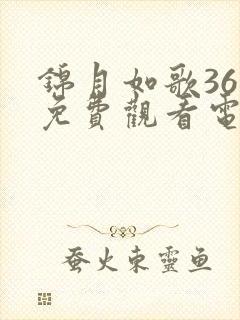 錦月如歌36
免費觀看電
蚕火東靈鱼